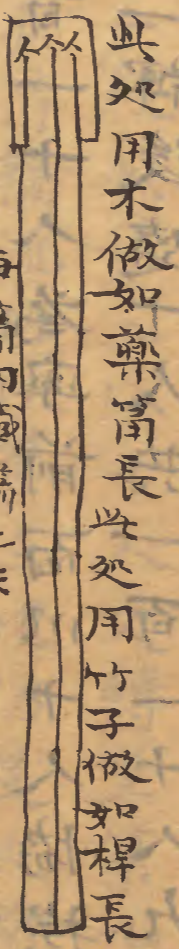 此处用木做如藥筩長此处用竹子做如桿長